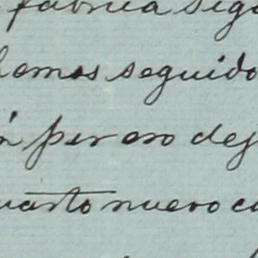 fabrica seg
hemos seguido
n per eso dej
uarto nuevo c